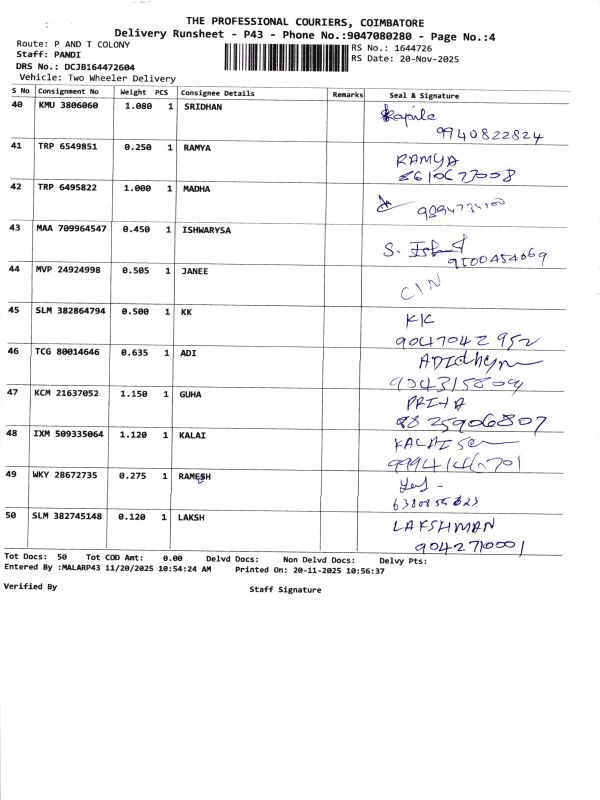 THE PROFESSIONAL COURIERS, COIMBATORE
Delivery Runsheet - P43 - Phone No.:9047080280 - Page No.:4
Route: P AND T COLONY
RS No.: 1644726
Staff: PANDI
RS Date: 20-Nov-2025
DRS No.: DCJB164472604
Vehicle: Two Wheeler Delivery
S No Consignment No Weight PCS Consignee Details Remarks Seal & Signature
40 KMU 3806060 1.080 1 SRIDHAN
9940822824
41 TRP 6549851 0.250 1 RAMYA RAMYA
42 TRP 6495822 1.000 1 MADHA
43 MAA 709964547 0.450 1 ISHWARYSA
9500454069
44 MVP 24924998 0.505 1 JANEE
45 SLM 382864794 0.500 1 KK KK
9047042952
46 TCG 80014646 0.635 1 ADI
47 KCM 21637052 1.150 1 GUHA PRIYA
8825906807
48 IXM 509335064 1.120 1 KALAI
49 WKY 28672735 0.275 1 RAMESH
50 SLM 382745148 0.120 1 LAKSH LAKSHMAN
9042710001
Tot Docs: 50 Tot COD Amt: 0.00 Delvd Docs: Non Delvd Docs: Delvy Pts:
Entered By :MALARP43 11/20/2025 10:54:24 AM Printed On: 20-11-2025 10:56:37
Verified By
Staff Signature